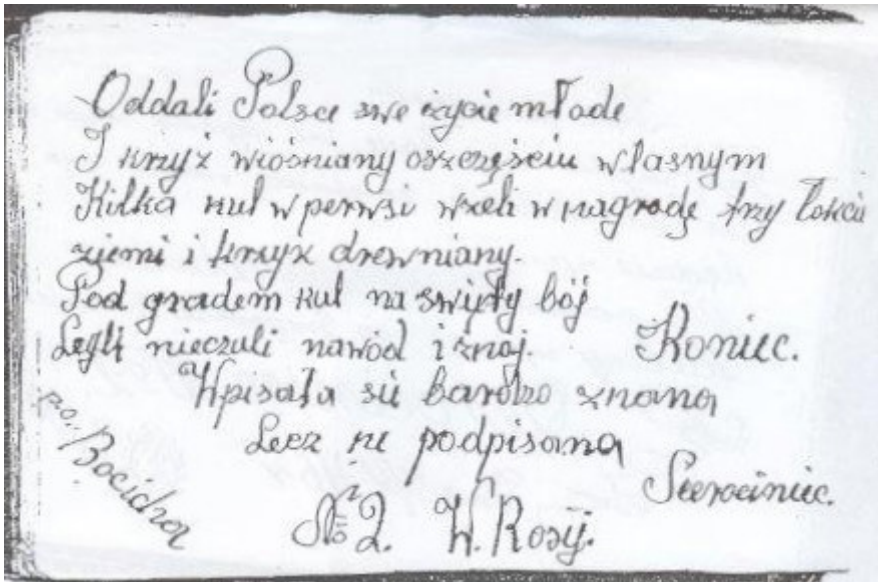 Oddali Polsce swe życie młode
I krzyż wiośniany oszczęściu własnym
Kilka kul w perwsi wzeli w nagrodę trzy łokcie
ziemi i krzyż drewniany.
Pod gradem kul na swięty bój
Legli nieczuli nawód i znój. Koniec.
Wpisała sie bardzo znana
Lecz ne podpisana
Sierociniec.
№ 2. W. Rosij.